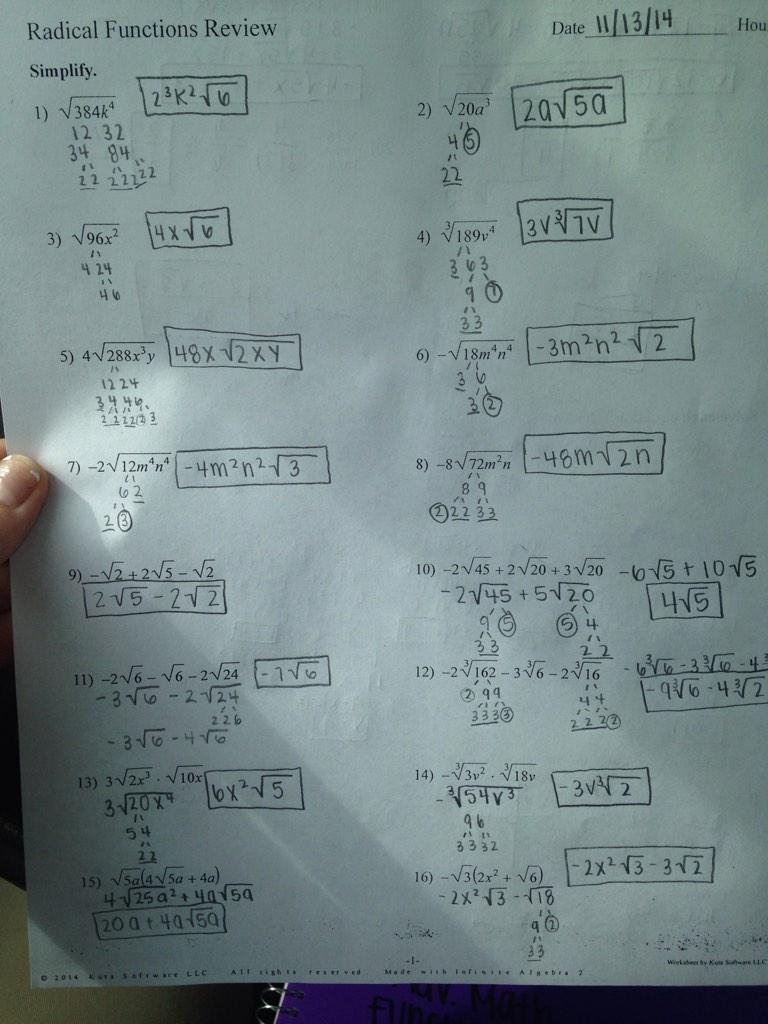 Radical Functions Review
Date 11/13/14 Hou
Simplify.
1) √384k⁴ 2³k²√6
12 32
34 84
22 22222
2) √20a³ 2a√5a
4 5
22
3) √96x² 4x√6
4 24
4 6
4) ∛189v⁴ 3v∛7v
3 63
9 7
33
5) 4√288x³y 48x√2xy
12 24
3 4 4 6
2 2 2 2 2 3
6) -√18m⁴n⁴ -3m²n²√2
3 6
3 2
7) -2√12m⁴n⁴ -4m²n²√3
6 2
2 3
8) -8√72m²n -48m√2n
8 9
2 22 33
9) -√2 + 2√5 - √2
2√5 - 2√2
10) -2√45 + 2√20 + 3√20 -6√5 + 10√5
-2√45 + 5√20 4√5
9 5 5 4
33 22
11) -2√6 - √6 - 2√24 -7√6
-3√6 - 2√24
2 2 6
-3√6 - 4√6
12) -2∛162 - 3∛6 - 2∛16 -6∛6 - 3∛6 - 4∛
2 99 44 -9∛6 - 4∛2
3333 2222
13) 3√2x³ · √10x 6x²√5
3√20x⁴
5 4
22
14) -∛3v² · ∛18v -3v∛2
-∛54v³
9 6
33 32
15) √5a(4√5a + 4a)
4√25a² + 4a√5a
20a + 4a√5a
16) -√3(2x² + √6) -2x²√3 - 3√2
-2x²√3 - √18
9 2
33
-1-
© 2014 Kuta Software LLC All rights reserved Made with Infinite Algebra 2
Worksheet by Kuta Software LLC
Adv. Math
Func